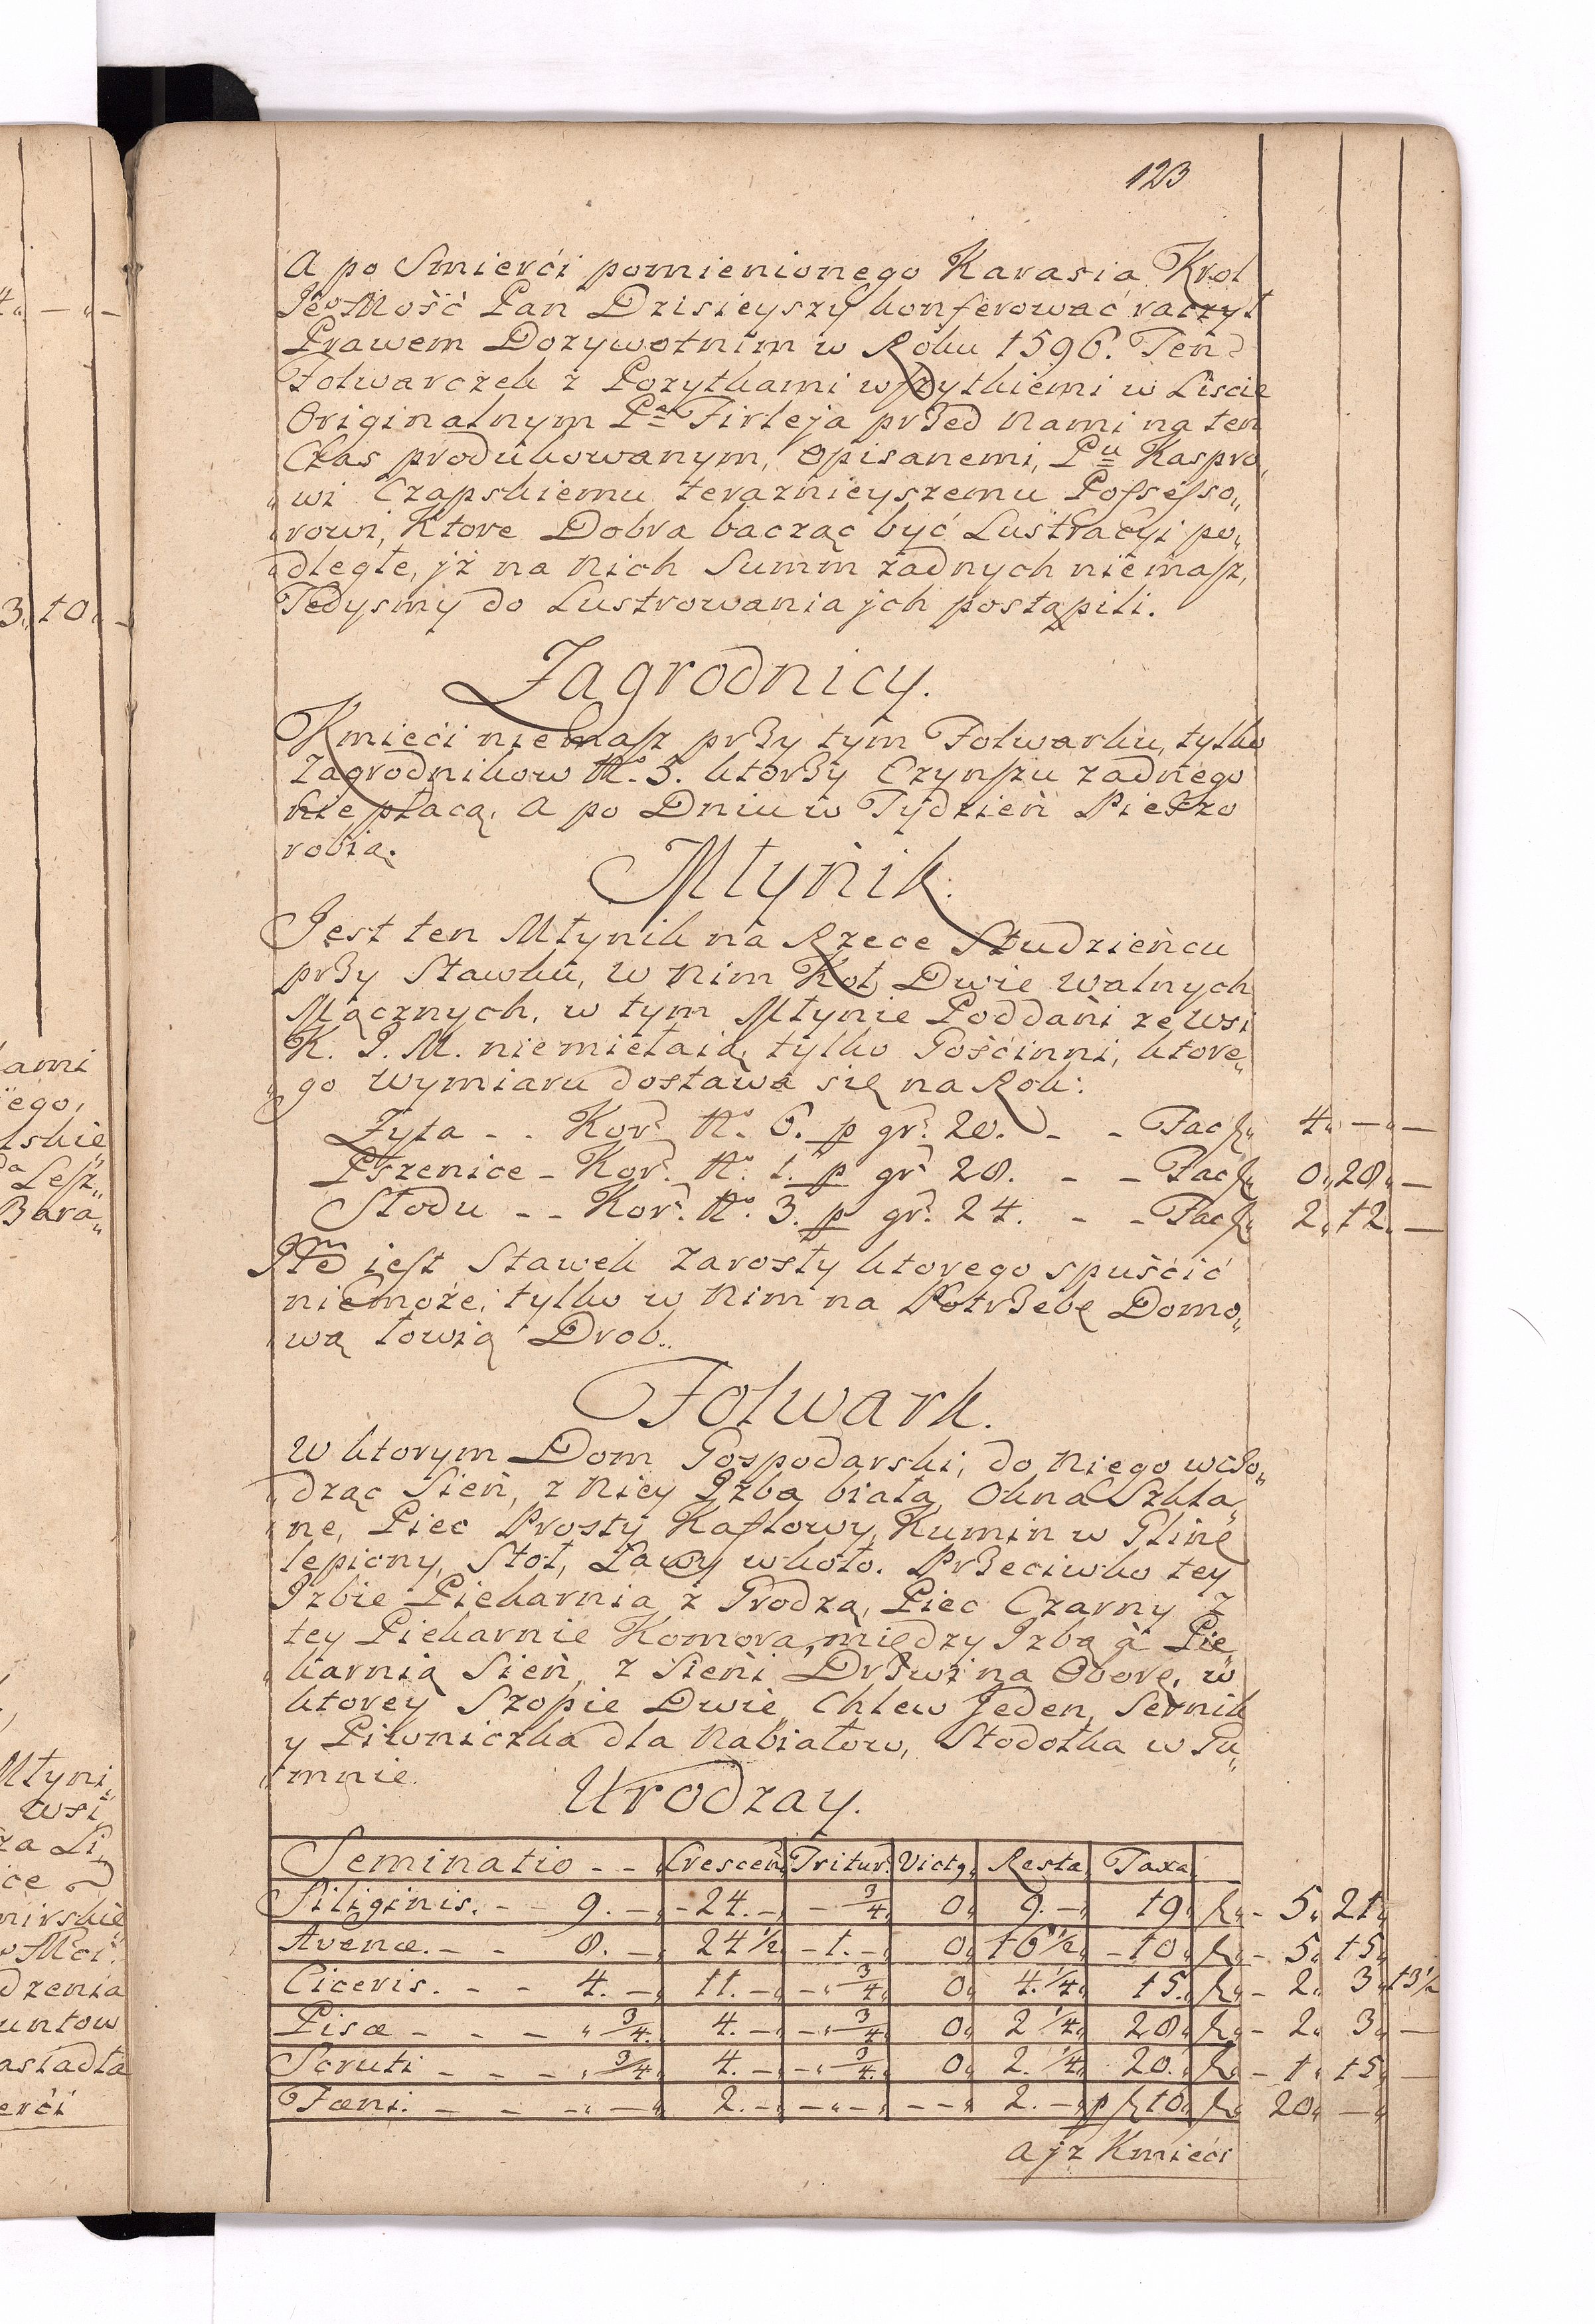 123
A po Smierci pomienionego Karasia Krol
Jeo Mość Pan Dzisieyszy konferować raczył
Prawem Dozywotnim w Roku 1596. Ten
Folwarczek z Pozytkami wszytkiemi w Liscie
Originalnym Pa Firleja przed Nami na ten
Czas produkowanym, opisanemi, Pu Kaspro„
„wi Czapskiemu teraznieyszemu Possesso„
„rowi, Ktore Dobra bacząc być Lustracyi po„
„dległe, jż na Nich Summ żadnych niemasz,
Tedysmy do Lustrowania jch postąpili.
Zagrodnicy.
Kmieci niemasz przy tym Folwarku, tylko
Zagrodnikow No. 3. ktorzy Czynszu zadnego
nie płacą, A po Dniu w Tydzień Pieszo
robią.
Młynik.
Jest ten Młynik na Rzece Studzieńcu
przy Stawku, w Nim Koł Dwie Walnych
Mącznych, w tym Młynie Poddani ze Wsi
K. J. M. niemielaią, tylko Gościnni, ktore„
„go wymiaru dostawa się na Rok:
Zyta - - Kor. No. 6. p gr. 20. - - Fac f. 4. — —
Pszenice - Kor. No. 1. p gr. 28. - - Fac f. 0. 28. —
Słodu - - Kor. No. 3. p gr. 24. - - Fac f. 2. 12. —
Jtem iest Stawek Zarosły ktorego spuścić
niemoże, tylko w Nim na Potrzebę Domo„
„wą łowią Drob.
Folwark.
W ktorym Dom Gospodarski, do Niego wcho„
„dząc Sień, z Niey Jzba biała, Okna Szkla„
„ne, Piec Prosty Kaflowy, Kumin w Glinę
lepiony, Stoł, Ławy wkoło. Przeciwko tey
Jzbie Piekarnia z Grodzą, Piec Czarny z
tey Piekarnie Komora, między Jzbą a Pie„
„karnią Sień, z Sieni Drzwi na Oborę, w
ktorey Szopie Dwie, Chlew Jeden, Sernik
y Piwniczka dla Nabiałow, Stodołka w Gu„
„mnie.
Urodzay.
Seminatio - - Crescen. Tritur. Victq. Resta Taxa
Siliginis. - - 9. — 24. — - 3/4 0 9. — 19 f. - 5. 21.
Avenæ. - - 8. — 24 1/2 - 1. - 0 16 1/2 - 10 f. - 5. 15.
Ciceris. - - 4. — 11. — - 3/4 0 4. 1/4 15. f. - 2. 3. 13 1/2
Pisæ - - - „ 3/4 4. — - 3/4 0 2 1/4 28. f. - 2. 3. —
Scruti - - - „ 3/4 4. — - 3/4 0 2. 1/4 20. f. - 1. 15. —
Fæni. - - - — 2. — - — - — 2. — p f 10 f. 20. —
A jz Kmieci